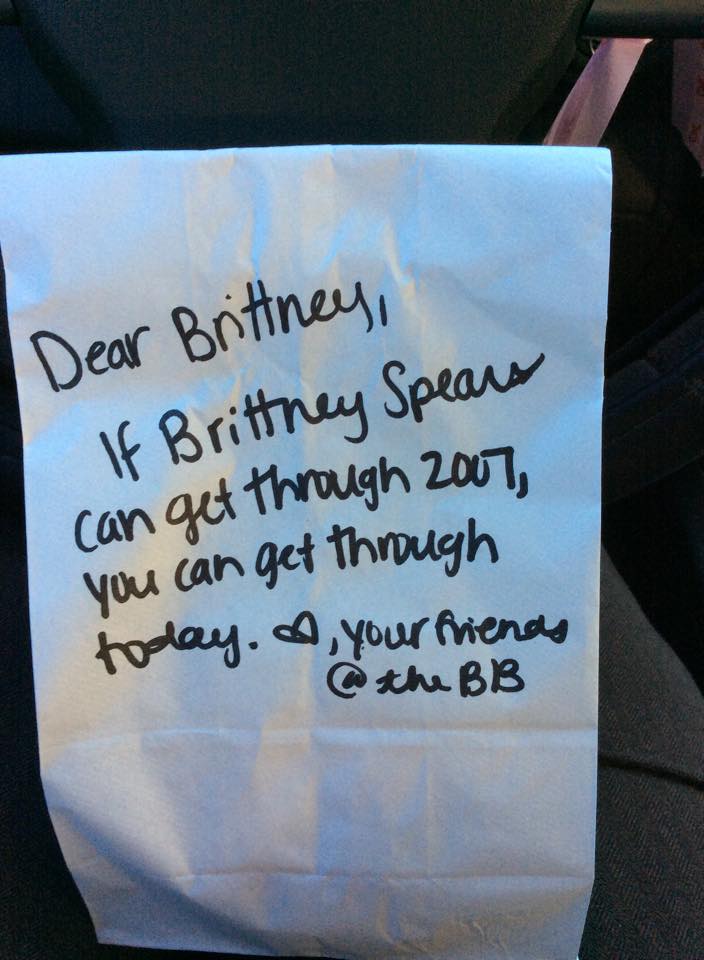 Dear Brittney,
If Brittney Spears
can get through 2007,
you can get through
today. ♡, your friends
@ the BB